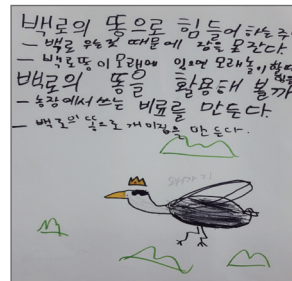 백로의 똥으로 힘들어 하는
- 백로 우는 것 때문에 잠을 못 잔다.
- 백로똥이 모래에 있으면 모래놀이 할때
백로의 똥을 활용해 볼까
- 농장에서 쓰는 비료를 만든다.
- 백로의 똥으로 개미장을 만든다.